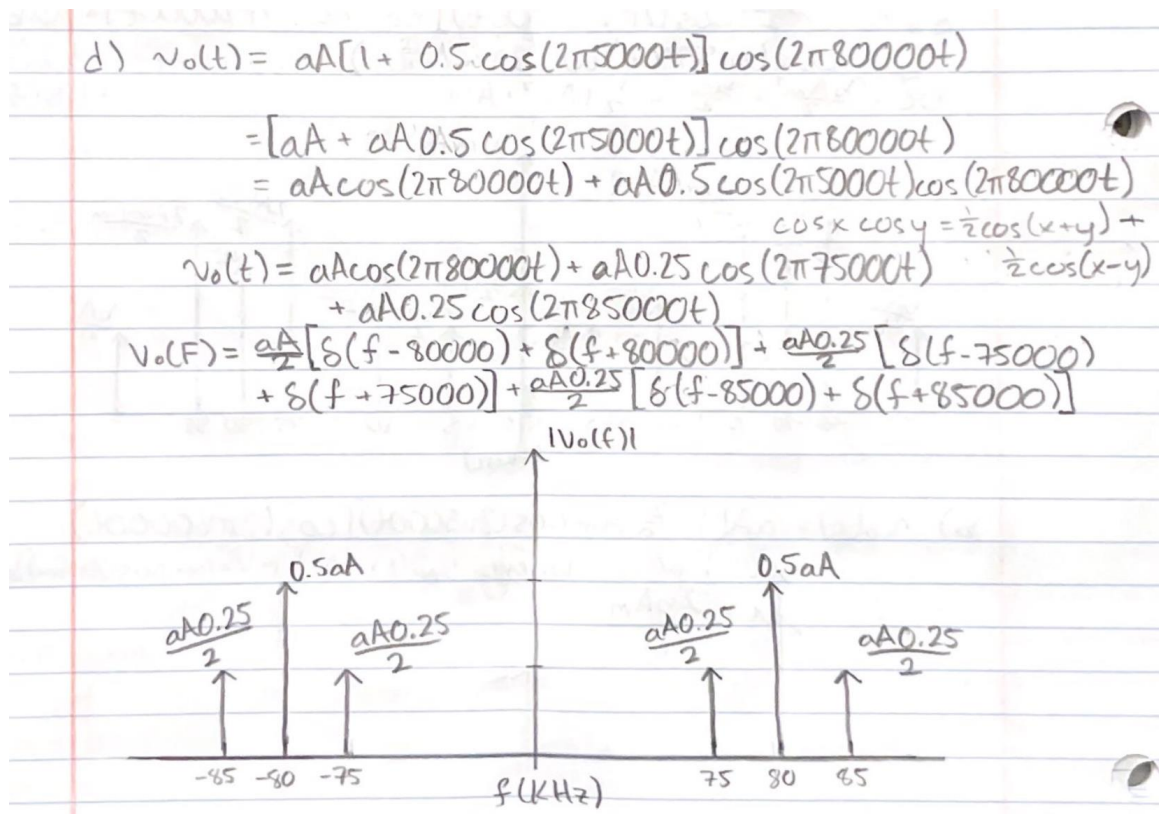 d) v₀(t) = aA[1 + 0.5 cos(2π5000t)] cos(2π80000t)
= [aA + aA0.5 cos(2π5000t)] cos(2π80000t)
= aAcos(2π80000t) + aA0.5cos(2π5000t)cos(2π80000t)
cosx cosy = ½cos(x+y) +
½cos(x-y)
v₀(t) = aAcos(2π80000t) + aA0.25 cos(2π75000t)
+ aA0.25 cos(2π85000t)
V₀(F) = aA/2 [δ(f-80000) + δ(f+80000)] + aA0.25/2 [δ(f-75000)
+ δ(f+75000)] + aA0.25/2 [δ(f-85000) + δ(f+85000)]
|V₀(f)|
0.5aA 0.5aA
aA0.25/2 aA0.25/2 aA0.25/2 aA0.25/2
-85 -80 -75 75 80 85
f(KHz)